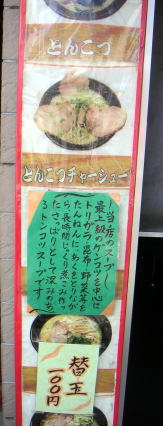 とんこつ
とんこつチャーシュー
当店のスープ
最上級のゲンコツを中心に
トリガラ、昆布、野菜等を
たんねんに、あくをとりながら
長時間じっくり煮こみ作っ
たさっぱりとして深みのあ
るトンコツスープです
替玉
一〇〇円